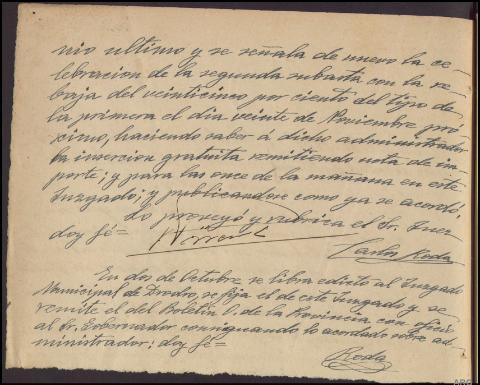 nio ultimo y se señala de nuevo la ce-
lebracion de la segunda subasta con la re-
baja del veinticinco por ciento del tipo de
la primera el dia veinte de Noviembre pró-
ximo, haciendo saber á dicho administrador
la insercion gratuita remitiendo nota de im-
porte; y para las once de la mañana en este
Juzgado; y publicandose como ya se acordó,
lo proveyó y rubrica el Sr. Juez
doy fé=
Carlos Roda
En dos de Octubre se libra edicto al Juzgado
Municipal de Drodro, se fija el de este Juzgado y se
remite el del Boletin O. de la Provincia con oficio
al Sr. Gobernador consignando lo acordado sobre ad-
ministrador; doy fé=
Roda